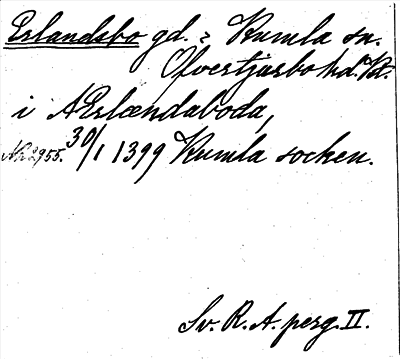 Erlandsbo gd. i Kumla sn.
Öfvertjurbo hd. Vst.
i AErlændaboda,
Nr 2955. 30/1 1399 Kumla socken.
Sv. R. A. perg. II.